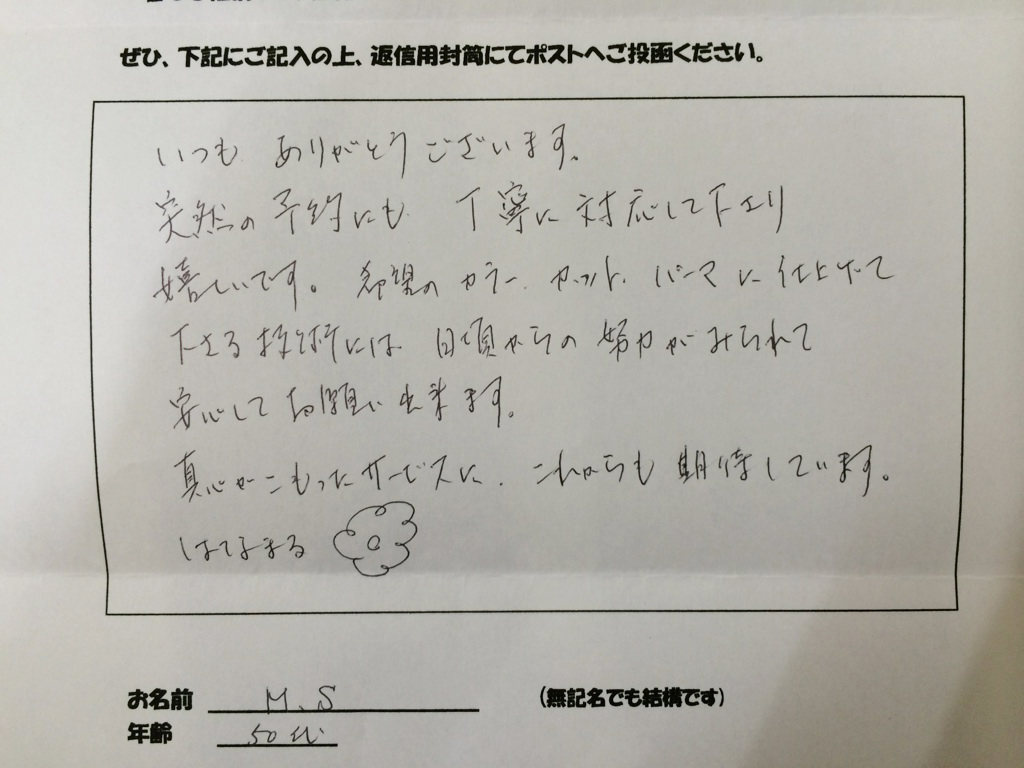 ぜひ、下記にご記入の上、返信用封筒にてポストへご投函ください。
いつも ありがとうございます。
突然の予約にも 丁寧に対応して下さり
嬉しいです。希望のカラー、カット、パーマに仕上げて
下さる技術には 日頃からの努力がみられて
安心してお願い出来ます。
真心がこもったサービスに、これからも期待しています。
はなまる
お名前 M.S (無記名でも結構です)
年齢 50代